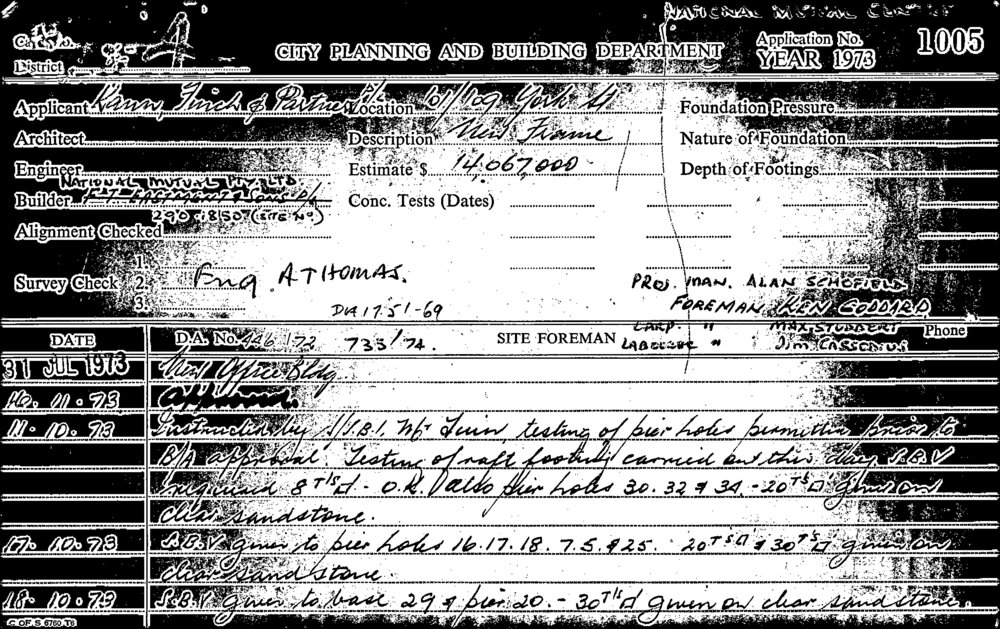 NATIONAL MUTUAL CENTRE
CITY PLANNING AND BUILDING DEPARTMENT
Application No. 1005
YEAR 1973
District
Applicant Kann, Finch & Partners Location 101/109 York St Foundation Pressure
Architect Description New Frame Nature of Foundation
Engineer Estimate $ 14,067,000 Depth of Footings
NATIONAL MUTUAL PTY LTD
Builder E.T. EASTMENT & SONS P/L Conc. Tests (Dates)
290.8507 (SITE No.)
Alignment Checked
1
Survey Check 2 Eng A THOMAS.
3
PROJ. MAN. ALAN SCHOFIELD
FOREMAN KEN GODDARD
DA 17.51-69
CARP. " MAX STUBBERT
DATE D.A. No. 446/72 733/74. SITE FOREMAN LABOURER " Jim Phone
31 JUL 1973 New Office Bldg
10. 11. 73 Approved.
11. 10. 73 Instructed by S/S.B.I. Mr testing of pier holes permitted prior to
B/A approval. Testing of raft footing carried out this day. S.B.V
required 8 T/S - O.K. also pier holes 30. 32 & 34. - 20 T/S given on
clear sandstone.
17. 10. 73 S.B.V given to pier holes 16. 17. 18. 7. 5. & 25. 20 T/S & 30 T/S given on
clear sandstone.
18. 10. 73 S.B.V given to base 29 & pier 20. - 30 T/S given on clear sandstone.
C OF S 6760 T6